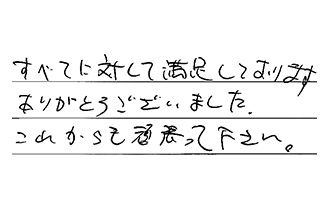 すべてに対して満足しております
ありがとうございました.
これからも頑張って下さい。